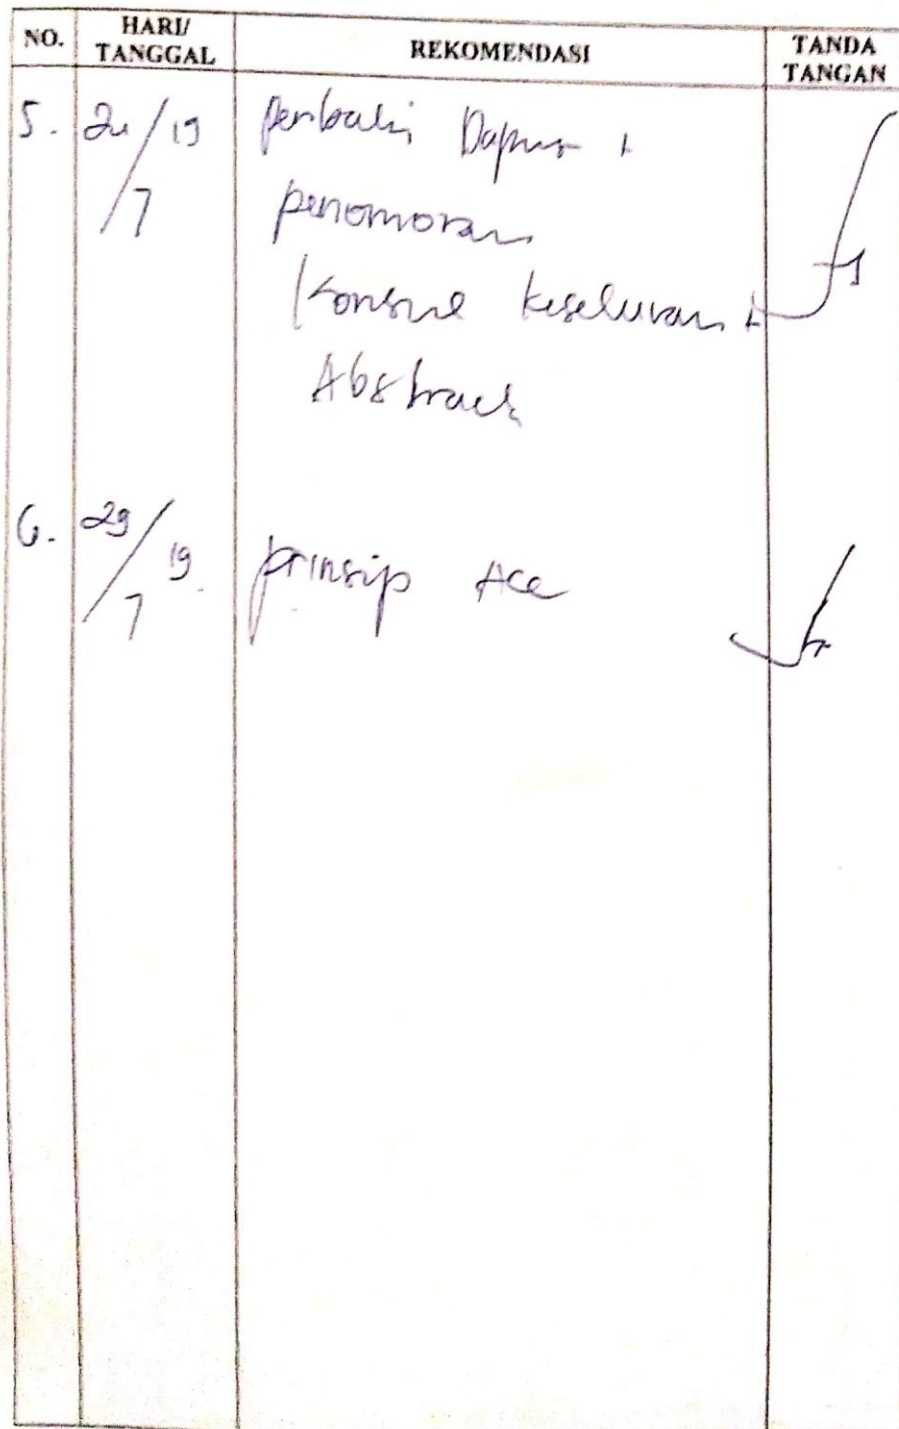 NO. HARI/ TANGGAL REKOMENDASI TANDA TANGAN
5. /19 Perbaiki Dapus +
/7 penomoran
Konsul keseluruan +
Abstrack
6. 29/19 prinsip Acc
/7